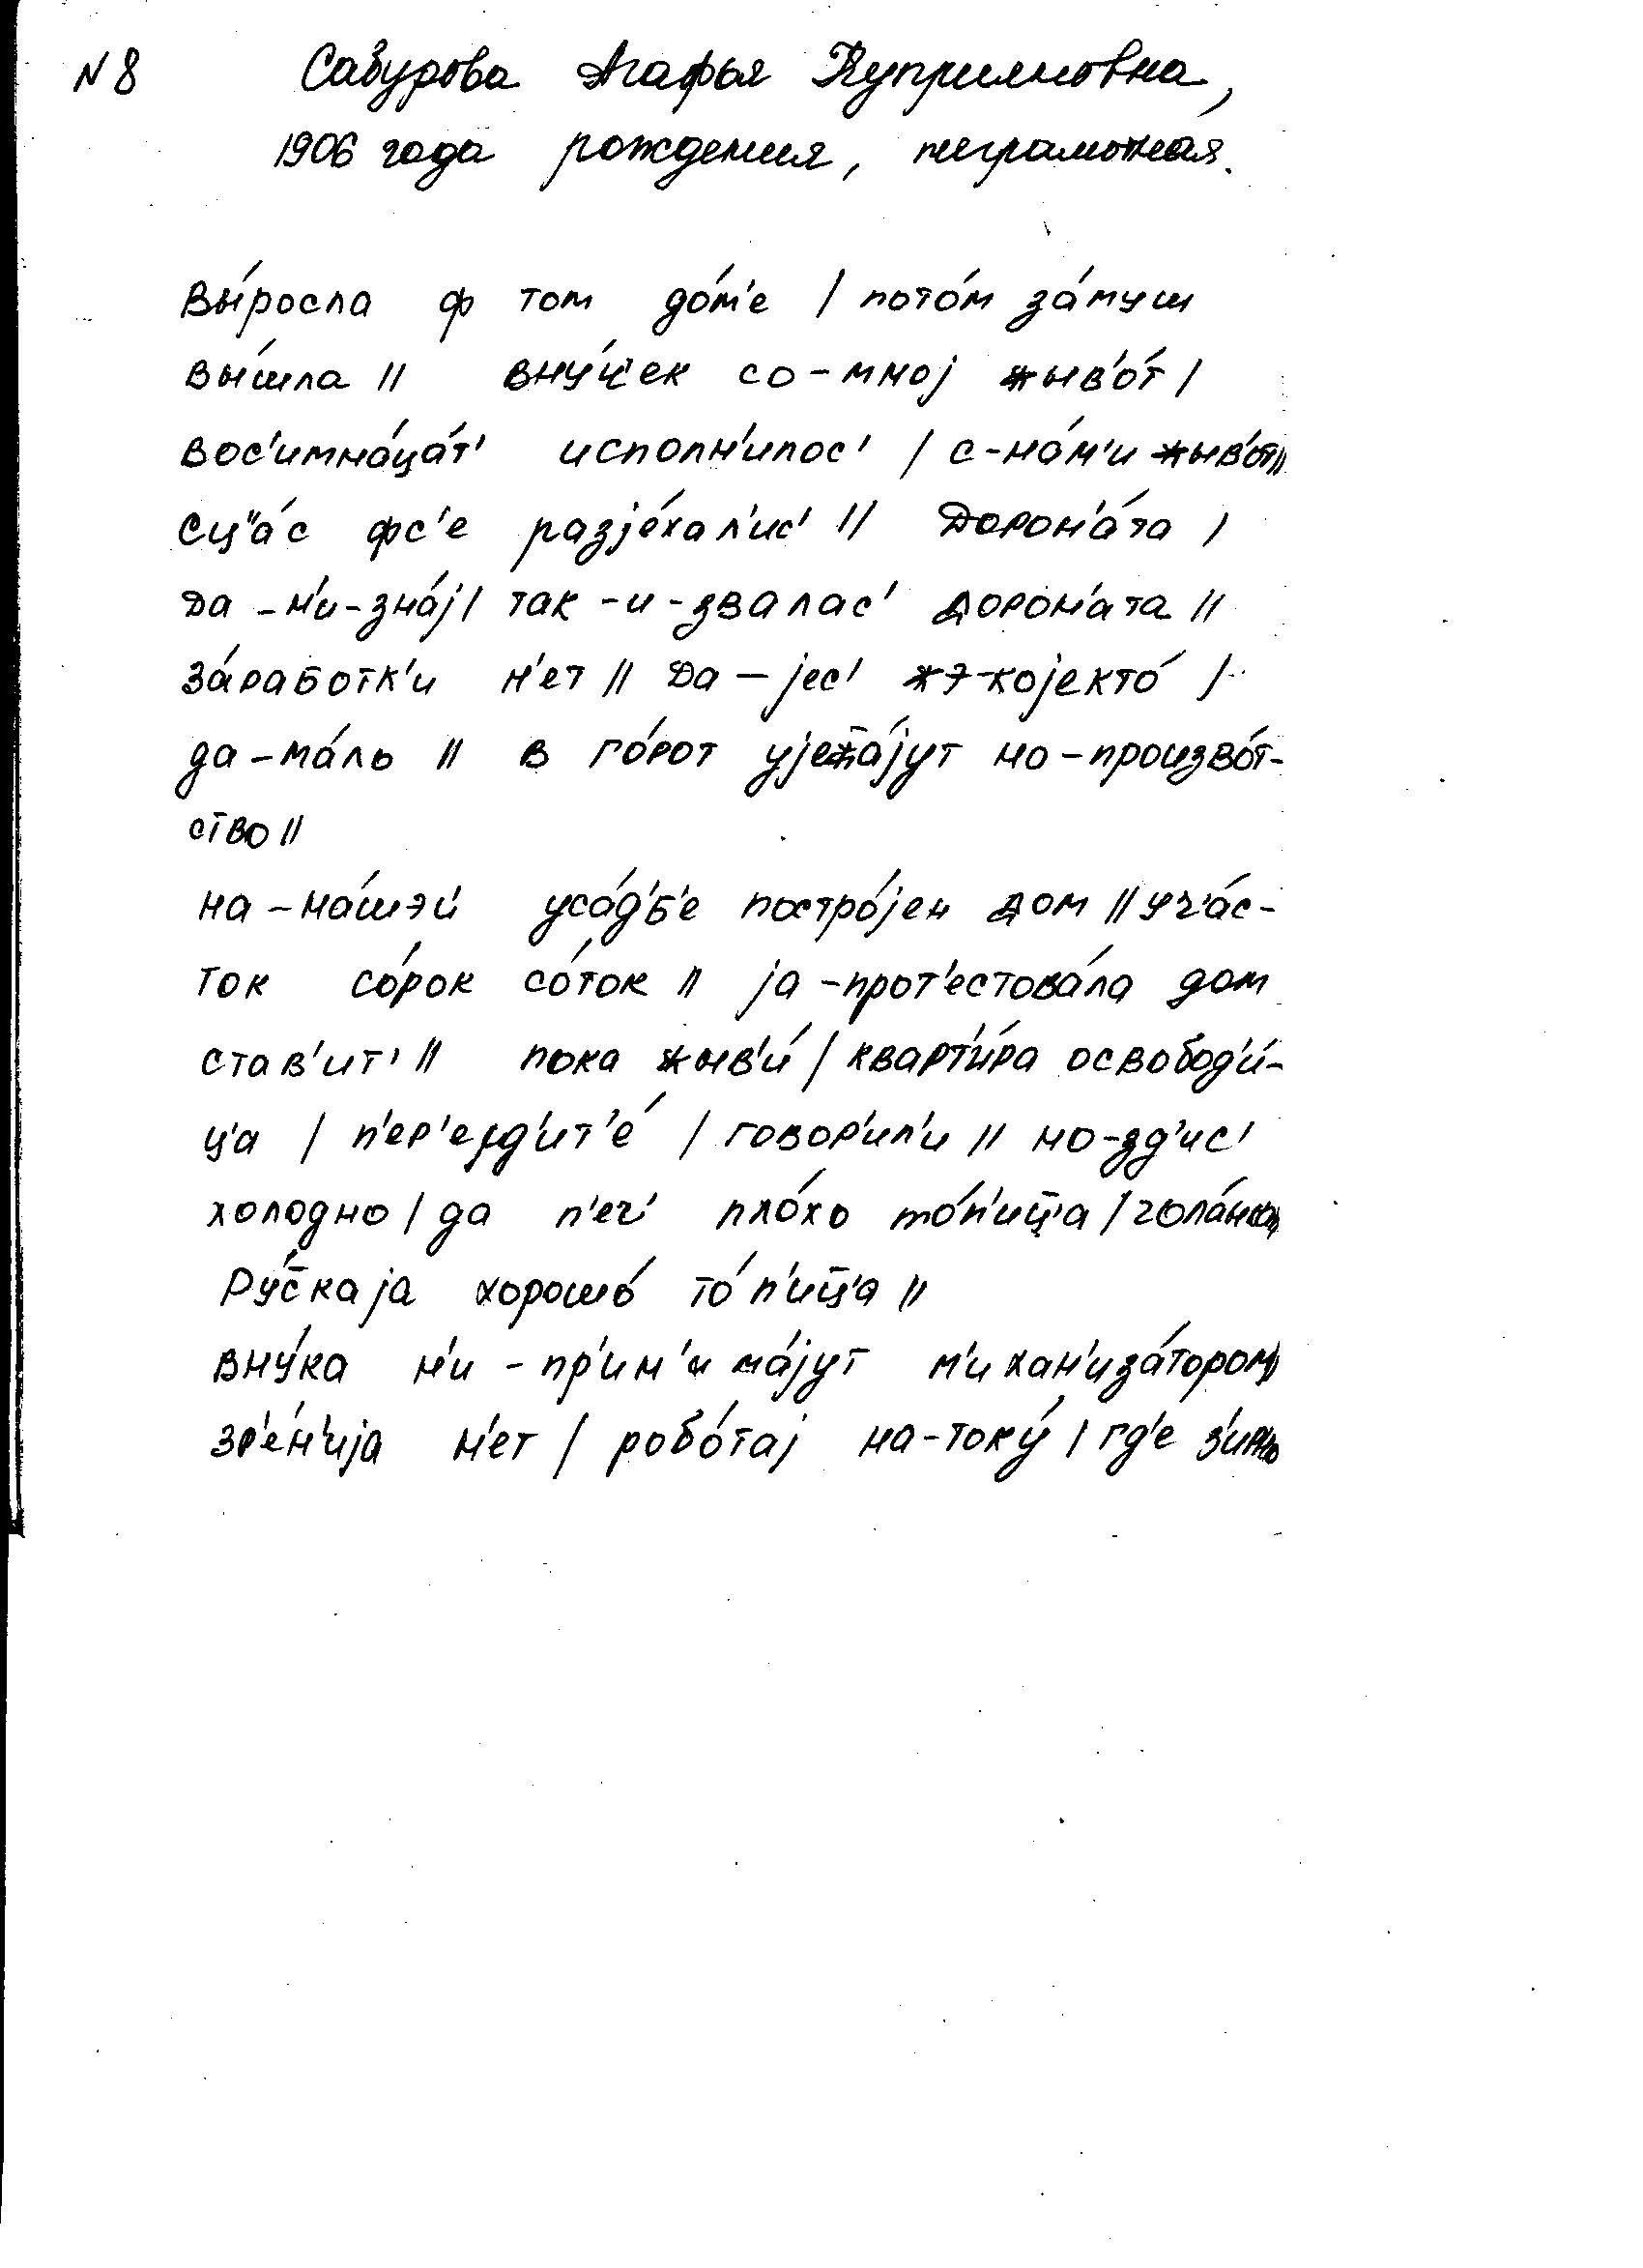 N 8 Сабурова Агафья Куприяновна,
1906 года рождения, неграмотная.
вы́росла ф том до́м'е / пото́м за́муш
вы́шла // вну́ч'ек со-мной жыв'о́т /
вос'имна́ца́т' исполн'илос' / с-на́м'и жыв'о́т //
сц"а́с фс'е разjе́хал'ис' // Дорон'а́та /
да-н'и-зна́j / так-и-звалас' дорон'ата //
за́работк'и н'ет // Да-jес' жэ-коjекто́ /
да-ма́ль // в го́рот уjежа́jут но-произво́т-
ство //
на-на́шэй уса́д'б'е постро́jен дом // уч'а́с-
ток со́рок со́ток // jа-прот'естова́ла дом
став'ит' // пока жыв'и́ / кварт'и́ра освобод'и́-
ц'а / п'ер'еjд'ит'е́ / говор'ил'и // но-зд'ис'
холодно / да п'еч' пло́хо то́п'иц'а / гола́нка //
Ру́скаjа хорошо́ то́п'иц'а //
вну́ка н'и-пр'ин'има́jут м'ихан'иза́тором //
зр'е́н'иjа н'ет / робо́таj на-току́ / гд'е